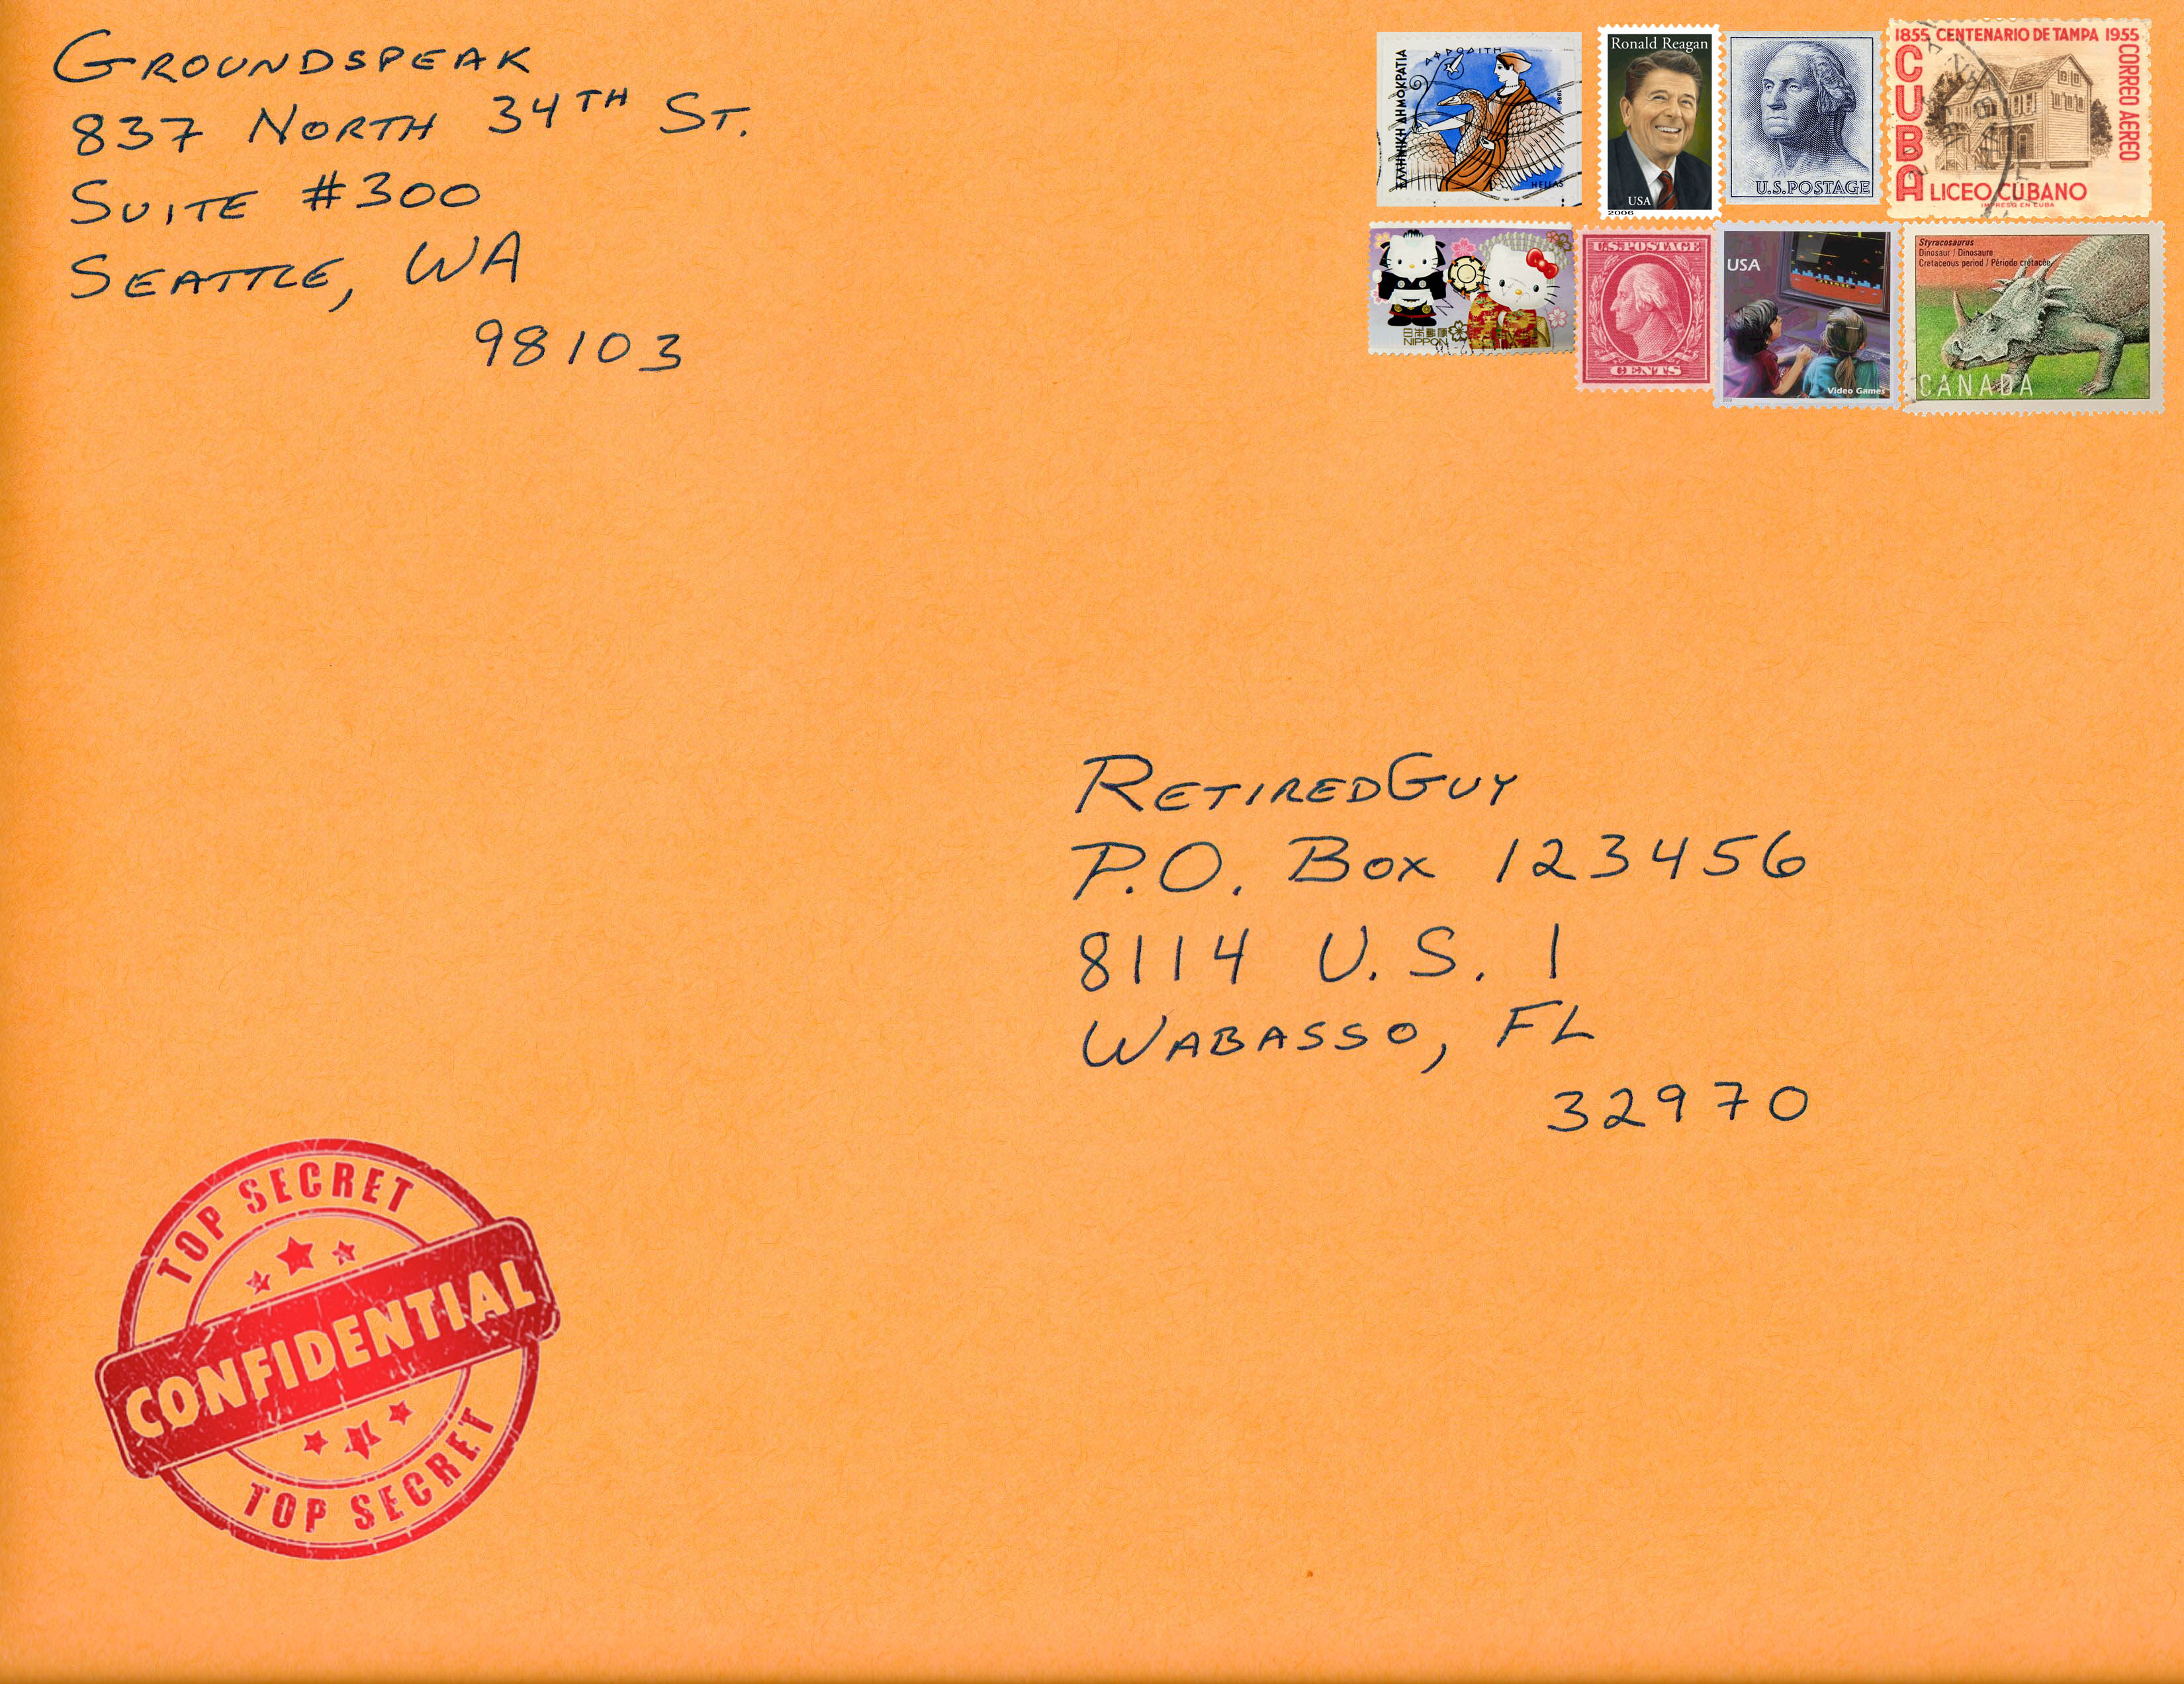 GROUNDSPEAK
837 NORTH 34TH ST.
SUITE #300
SEATTLE, WA
98103
ΕΛΛΗΝΙΚΗ ΔΗΜΟΚΡΑΤΙΑ
ΑΦΡΟΔΙΤΗ
HELLAS
Ronald Reagan
USA
2006
U.S.POSTAGE
1855 CENTENARIO DE TAMPA 1955
CUBA
CORREO AEREO
LICEO CUBANO
IMPRESO EN CUBA
日本郵便
NIPPON
U.S.POSTAGE
CENTS
USA
Video Games
Styracosaurus
Dinosaur / Dinosaure
Cretaceous period / Période crétacée
CANADA
RETIREDGUY
P.O. BOX 123456
8114 U.S. 1
WABASSO, FL
32970
TOP SECRET
CONFIDENTIAL
TOP SECRET